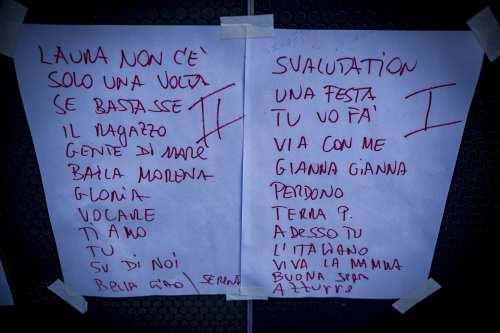 LAURA NON C'È
SOLO UNA VOLTA
SE BASTASSE
IL RAGAZZO
GENTE DI MARE
BAILA MORENA
GLORIA
VOLARE
TI AMO
TU
SU DI NOI
BELLA CIAO / SERENA
II
SVALUTATION
UNA FESTA
TU VO FA'
VIA CON ME
GIANNA GIANNA
PERDONO
TERRA P.
ADESSO TU
L'ITALIANO
VIVA LA MAMMA
BUONA SERA
AZZURRO
I